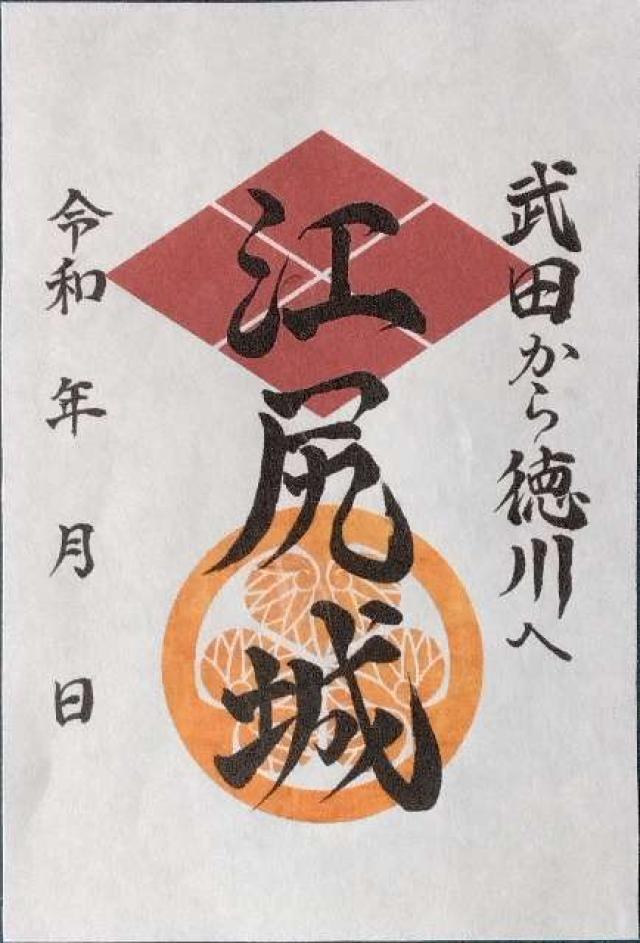 武田から徳川へ
江尻城
令和 年 月 日